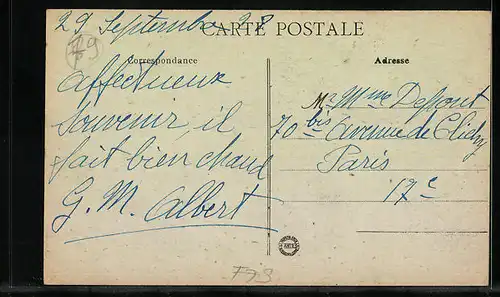 29 Septembre 28
CARTE POSTALE
79
Correspondance
Adresse
affectueux
souvenir, il
fait bien chaud
G. M. Albert
Mr Mme Dessont
70 bis Avenue de Clichy
Paris
17e
F79